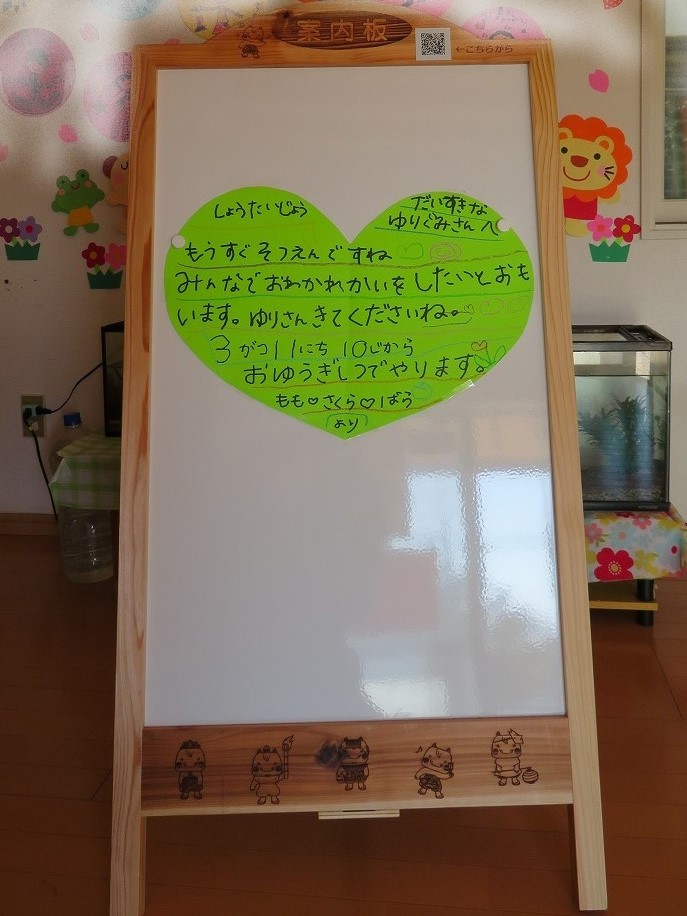 案内板
←こちらから
しょうたいじょう
だいすきな
ゆりぐみさんへ
もうすぐそつえんですね
みんなでおわかれかいをしたいとおも
います。ゆりさんきてくださいね。
3がつ11にち 10じから
おゆうぎしつでやります。
もも♡さくら♡ばら
より